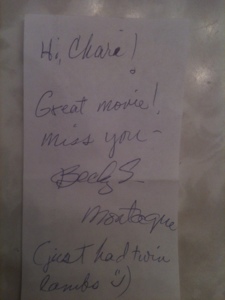 Hi, Chari!
Great movie!
Miss you -
Becky S.
Montague
(just had twin
lambs ☺)